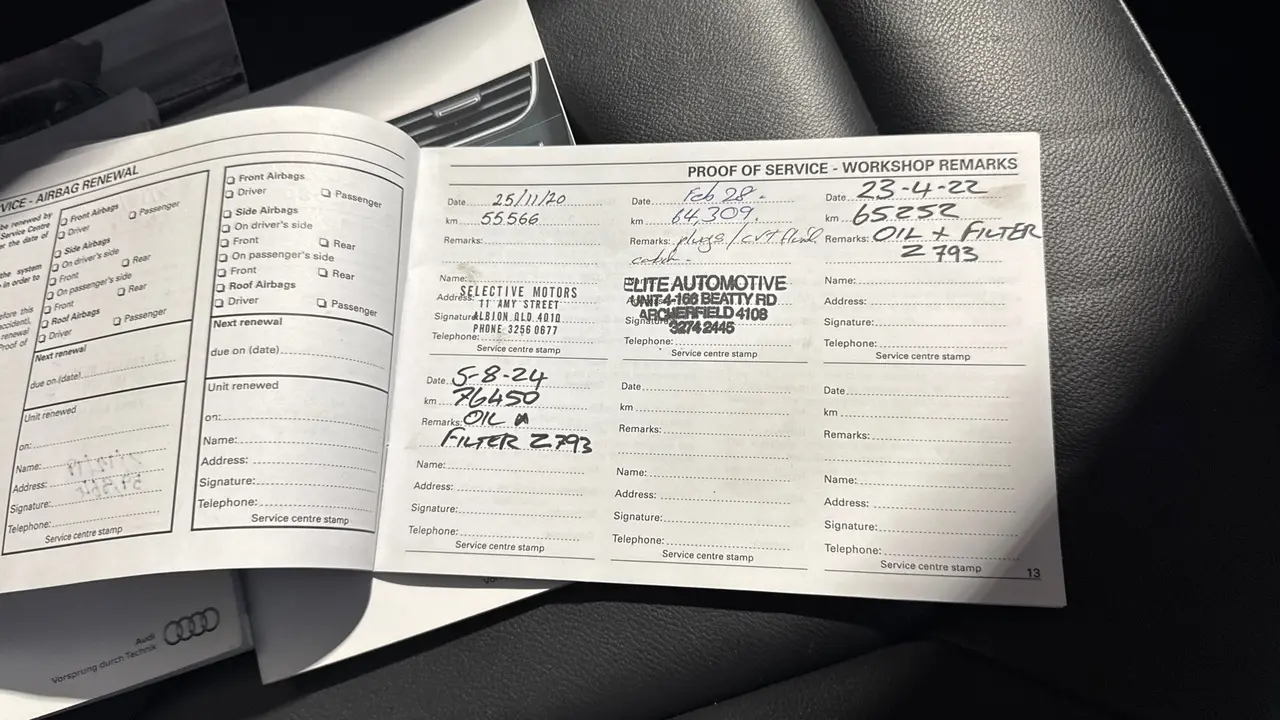 VICE - AIRBAG RENEWAL
renewed by
Service Centre
r the date of
the system
in order to
before this
accident),
renewal
Proof of
Front Airbags
Driver
Passenger
Side Airbags
On driver's side
Front
Rear
On passenger's side
Front
Rear
Roof Airbags
Driver
Passenger
Next renewal
due on (date)
Unit renewed
on:
Name:
Address:
Signature:
Telephone:
Service centre stamp
Front Airbags
Driver
Passenger
Side Airbags
On driver's side
Front
Rear
On passenger's side
Front
Rear
Roof Airbags
Driver
Passenger
Next renewal
due on (date)
Unit renewed
on:
Name:
Address:
Signature:
Telephone:
Service centre stamp
PROOF OF SERVICE - WORKSHOP REMARKS
Date 25/11/20
km 55566
Remarks:
Name:
Address:
Signature:
Telephone:
SELECTIVE MOTORS
11 AMY STREET
ALBION QLD 4010
PHONE 3256 0677
Service centre stamp
Date Feb 28.
km 64,309.
Remarks: plugs/cvt fluid
ELITE AUTOMOTIVE
UNIT 4-166 BEATTY RD
ARCHERFIELD 4108
3274 2445
Telephone:
Service centre stamp
Date 23-4-22
km 65252
Remarks: OIL + FILTER
Z793
Name:
Address:
Signature:
Telephone:
Service centre stamp
Date 5-8-24
km 76450
Remarks: OIL
FILTER Z793
Name:
Address:
Signature:
Telephone:
Service centre stamp
Date
km
Remarks:
Name:
Address:
Signature:
Telephone:
Service centre stamp
Date
km
Remarks:
Name:
Address:
Signature:
Telephone:
Service centre stamp
13
Audi
Vorsprung durch Technik